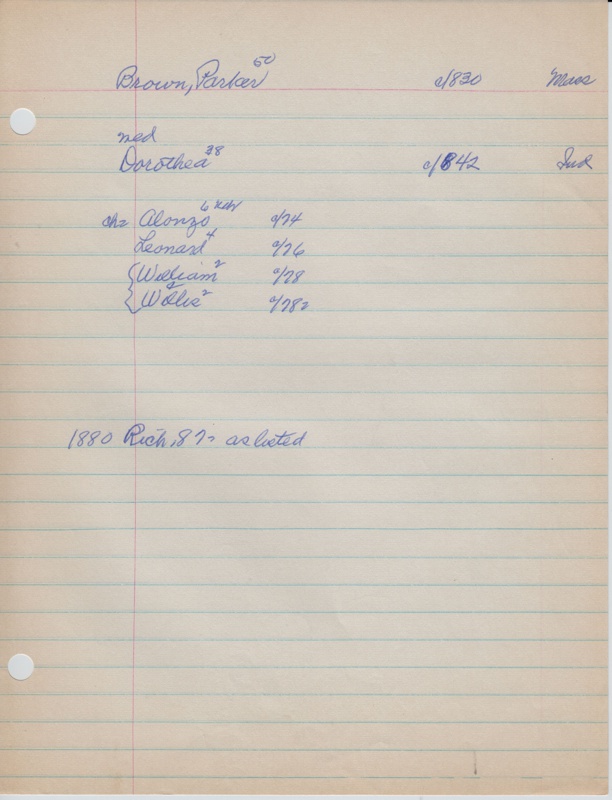 Brown, Parker 50 c/1830 Mass
med
Dorothea 38 c/1842 Ind
ch: Alonzo 6 c/74
Leonard 4 c/76
William 2 c/78
& Willie 2 c/78
1880 Rich, 87- as listed